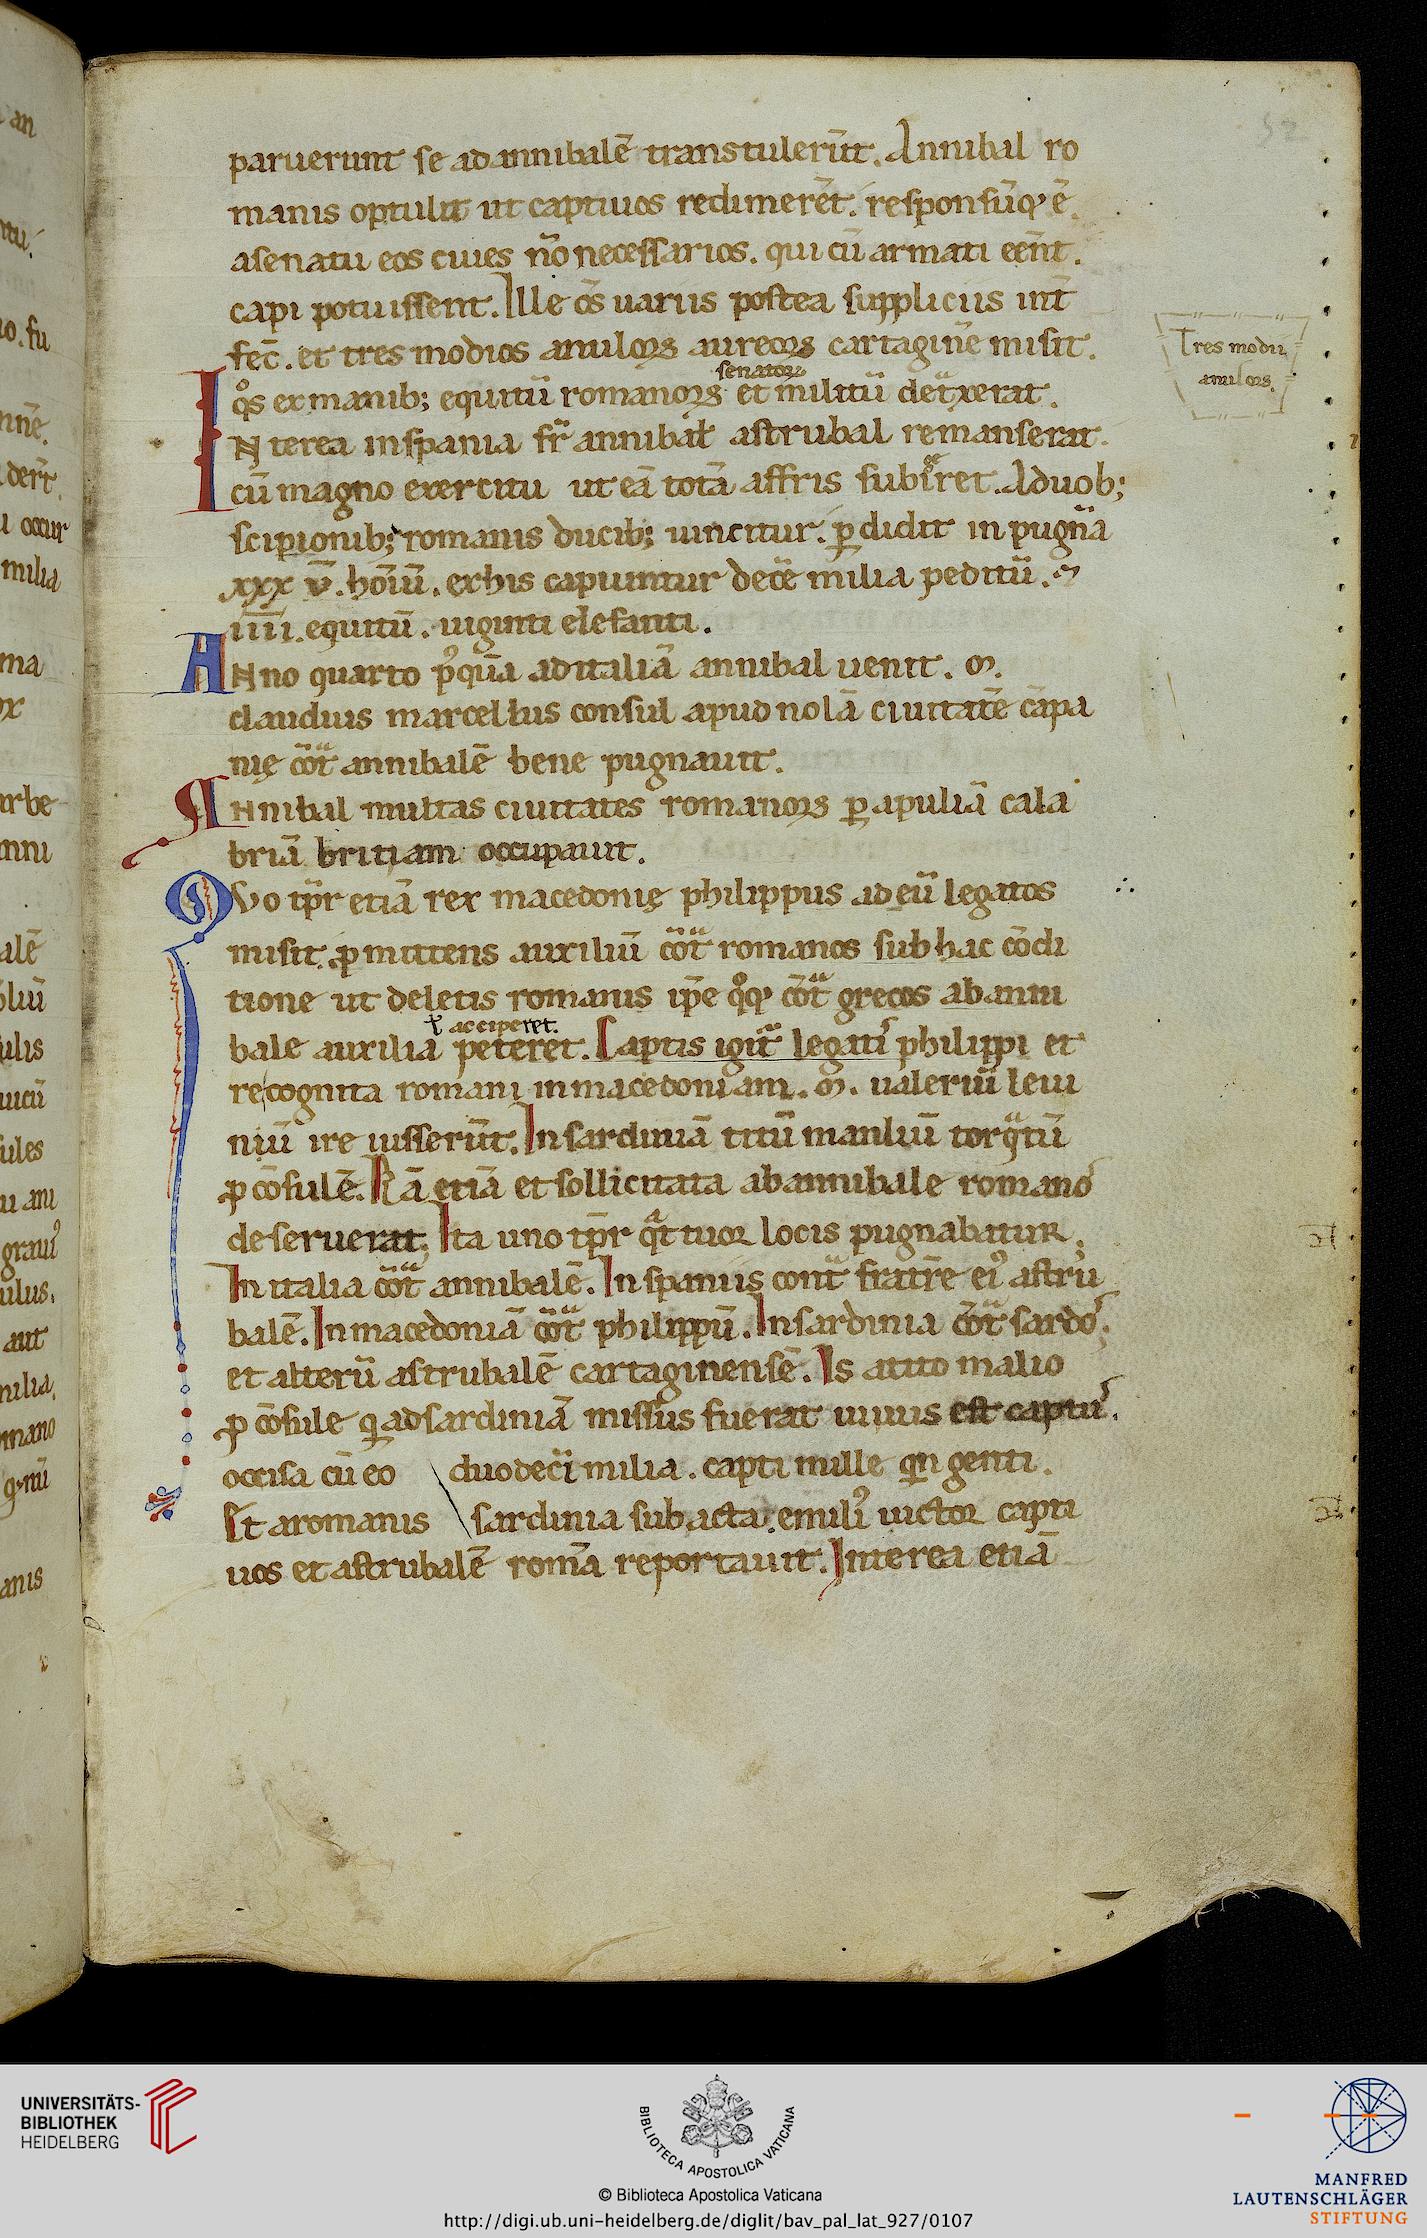 paruerunt se ad annibalē transtulerūt. Annibal ro
manis optulit ut captiuos redimerēt. responsūq; ē.
a senatu eos ciues nō necessarios. qui cū armati eēnt.
capi potuissent. Ille oēs uariis postea suppliciis int̄
fec̄. et tres modios anuloꝝ aureoꝝ cartaginē misit.
Tres modii
anuloꝝ.
senatoꝝ
qͦs ex manib; equitū romanoꝝ et militū det̃xerat.
INterea in spania fr̃ annibaƚ astrubal remanserat.
cū magno exercitu ut eā totā affris subiͣret. A duob;
scipionib; romanis ducib; uincitur. ꝑdidit in pugna
xxx v̄. hoīuꝫ. ex his capiuntur decē milia peditū. ⁊
iiii. equitū. uiginti elefanti.
ANno quarto pꝰquā ad italiā annibal uenit. M.
claudius marcellus consul apud nolā ciuitatē cāpa
nię cōt̃ annibalē bene pugnauit.
ANnibal multas ciuitates romanoꝝ ꝑ apuliā cala
briā britiam occupauit.
QVo tp̄r etiā rex macedonię philippus ad eū legatos
misit. ꝓmittens auxiliū cōt̃ romanos sub hac cōdi
tione ut deletis romanis ip̄e qͦq; cōt̃ grecos ab anni
ł acciperet.
bale auxilia peteret. Captis igit̃ legatis philippi et
re cognita romani in macedoniam. M. ualeriū leui
niū ire iusserūt. In sardiniā titū manliū torqͣtū
ꝓcōsulē. Nā etiā et sollicitata ab annibale romanos
deseruerat. Ita uno tp̄r qͣttuor locis pugnabatur.
In italia cōt̃ annibalē. In spaniis cont̃ fratrē eiꝰ astru
balē. In macedoniā cōt̃ philippū. In sardinia cōt̃ sardos.
et alterū astrubalē cartaginensē. Is a tito malio
ꝓcōsule q ad sardiniā missus fuerat uiuus est captus.
occisa cū eo duodecī milia. capti mille qngenti.
Et a romanis sardinia subacta. emiliꝰ uictor capti
uos et astrubalē romā reportauit. Interea etiā
UNIVERSITÄTS-
BIBLIOTHEK
HEIDELBERG
BIBLIOTECA APOSTOLICA VATICANA
© Biblioteca Apostolica Vaticana
http://digi.ub.uni-heidelberg.de/diglit/bav_pal_lat_927/0107
MANFRED
LAUTENSCHLÄGER
STIFTUNG